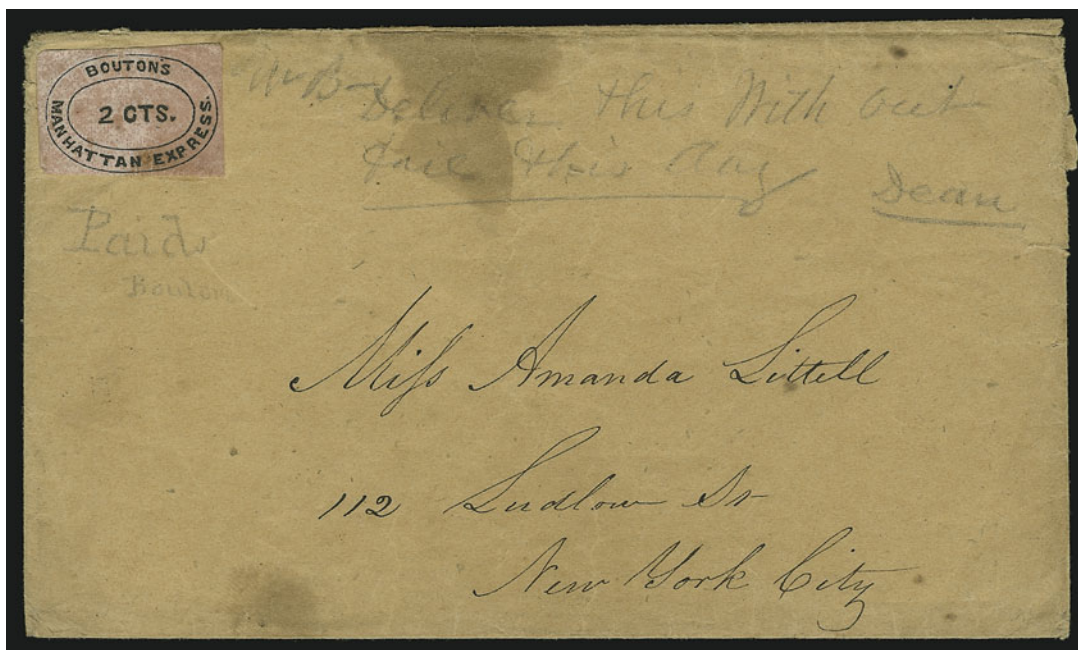 BOUTON'S
2 CTS.
MANHATTAN EXPRESS.
Mr B— Deliver this With out
fail this day Dean
Paid
Bouton
Miss Amanda Littell
112 Ludlow St
New York City